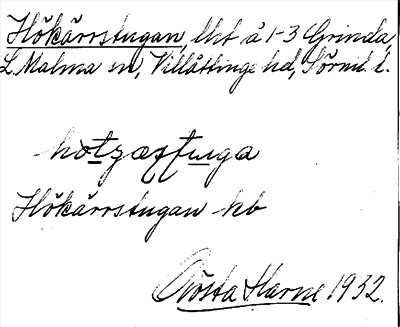 Hökärrstugan, lht å 1-3 Grinda,
L. Malma sn, Villåttinge hd, Sörml. l.
Hökärrstugan kb
Gösta Harne 1932.